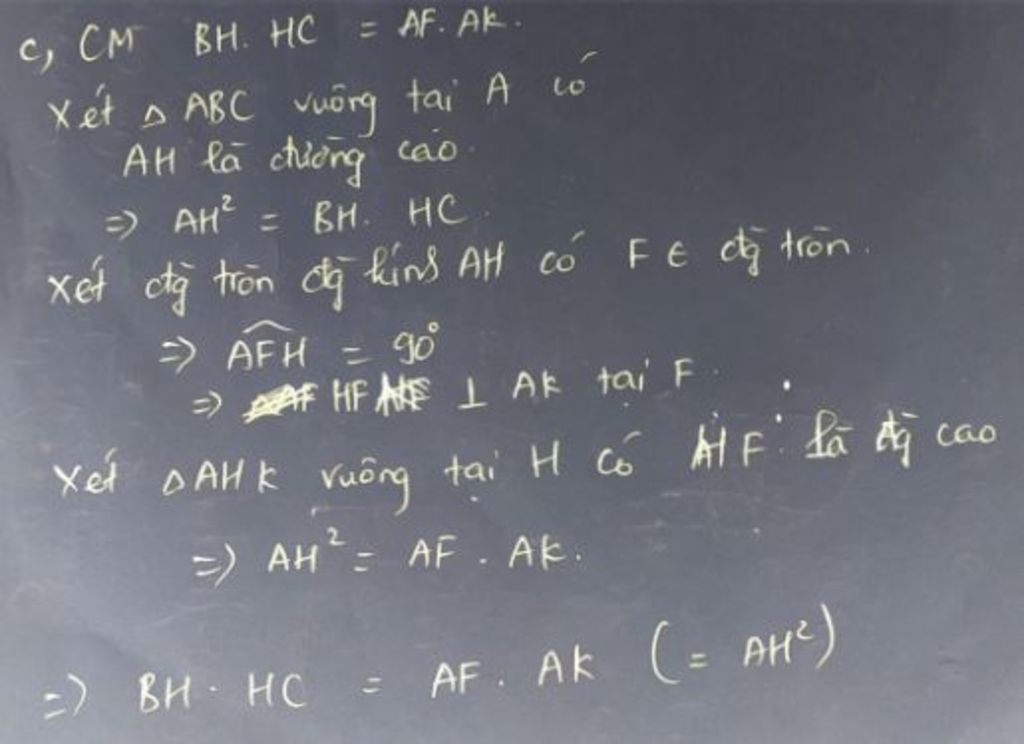 c, CM BH. HC = AF. AK.
Xét △ ABC vuông tại A có
AH là đường cao.
=> AH² = BH. HC.
Xét đg tròn đg kính AH có F ∈ đg tròn.
=> AFH = 90°
=> HF ⊥ AK tại F.
Xét △ AHK vuông tại H có HF là đg cao
=> AH² = AF . AK.
=> BH . HC = AF . AK (= AH²)